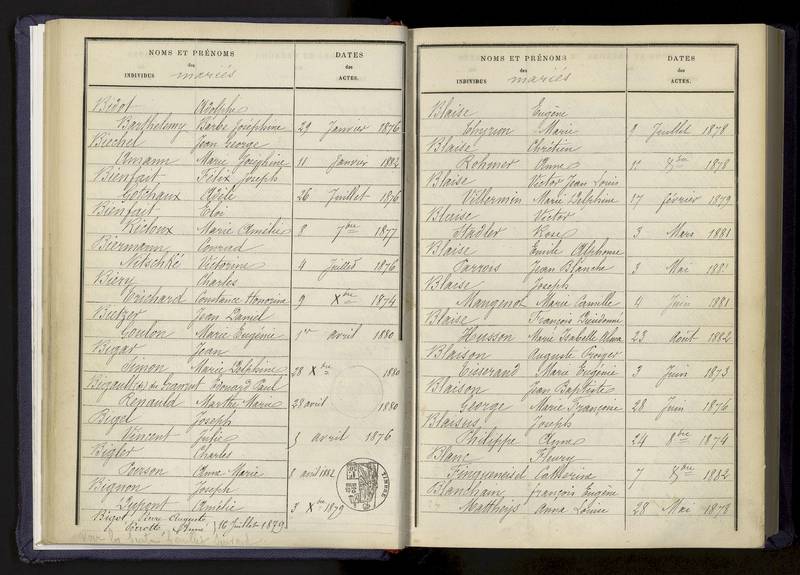 NOMS ET PRÉNOMS
des
INDIVIDUS mariés
DATES
des
ACTES.
Bidot Adolphe
Barthelemy Barbe Joséphine 29 Janvier 1876
Biechel Jean George
Amann Marie Joséphine 11 Janvier 1882
Bienfait Félix Joseph
Gotchaux Adèle 26 Juillet 1876
Bienfait Eloi
Ricloux Marie Amélie 8 7bre 1877
Biermann Conrad
Nitschké Victorine 4 Juillet 1876
Biery Charles
Vrichard Constance Honorine 9 Xbre 1874
Jean Daniel
Goulon Marie Eugénie 1er avril 1880
Bigar Jean
Simon Marie Delphine 28 Xbre 1880
Edouard Paul
Renauld Marthe Marie 28 avril 1880
Bigel Joseph
Vincent Julie 3 avril 1876
Bigler Charles
Poirson Anne Marie 8 avril 1882
Bignon Joseph
Dupont Amélie 3 Xbre 1879
Bigot Pierre Auguste
Anne 16 Juillet 1879
TIMBRE
NOMS ET PRÉNOMS
des
INDIVIDUS mariés
DATES
des
ACTES.
Blaise Eugène
Thyrion Marie 9 Juillet 1878
Blaise Chrétien
Rohmer Anne 1878
Blaise Victor Jean Louis
Villermin Marie Delphine 17 février 1879
Blaise Victor
Stadler Rose 3 Mars 1881
Blaise Emile Alphonse
Parrois Jean Blanche 3 Mai 1881
Blaise Joseph
Mangenot Marie Camille 4 Juin 1881
Blaise François Dieudonné
Husson Marie Isabelle Alma 23 Août 1882
Blaison Auguste Prosper
Tisserand Marie Eugénie 3 Juin 1873
Blaison Jean Baptiste
George Marie Françoise 28 Juin 1876
Blaisus Joseph
Philippe Anne 24 8bre 1874
Blanc Fleury
Finqueneisel Catherine 7 1882
Blancham françois Eugène
Mattheys Anna Louise 28 Mai 1878